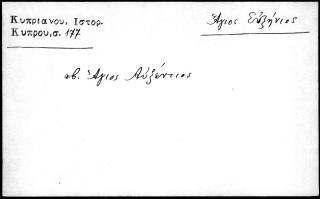 Κυπριανου, Ιστορ.
Κυπρου, σ. 177
Ἅγιος Εὐξήνιος
αβ. Ἅγιος Αὐξέντιος